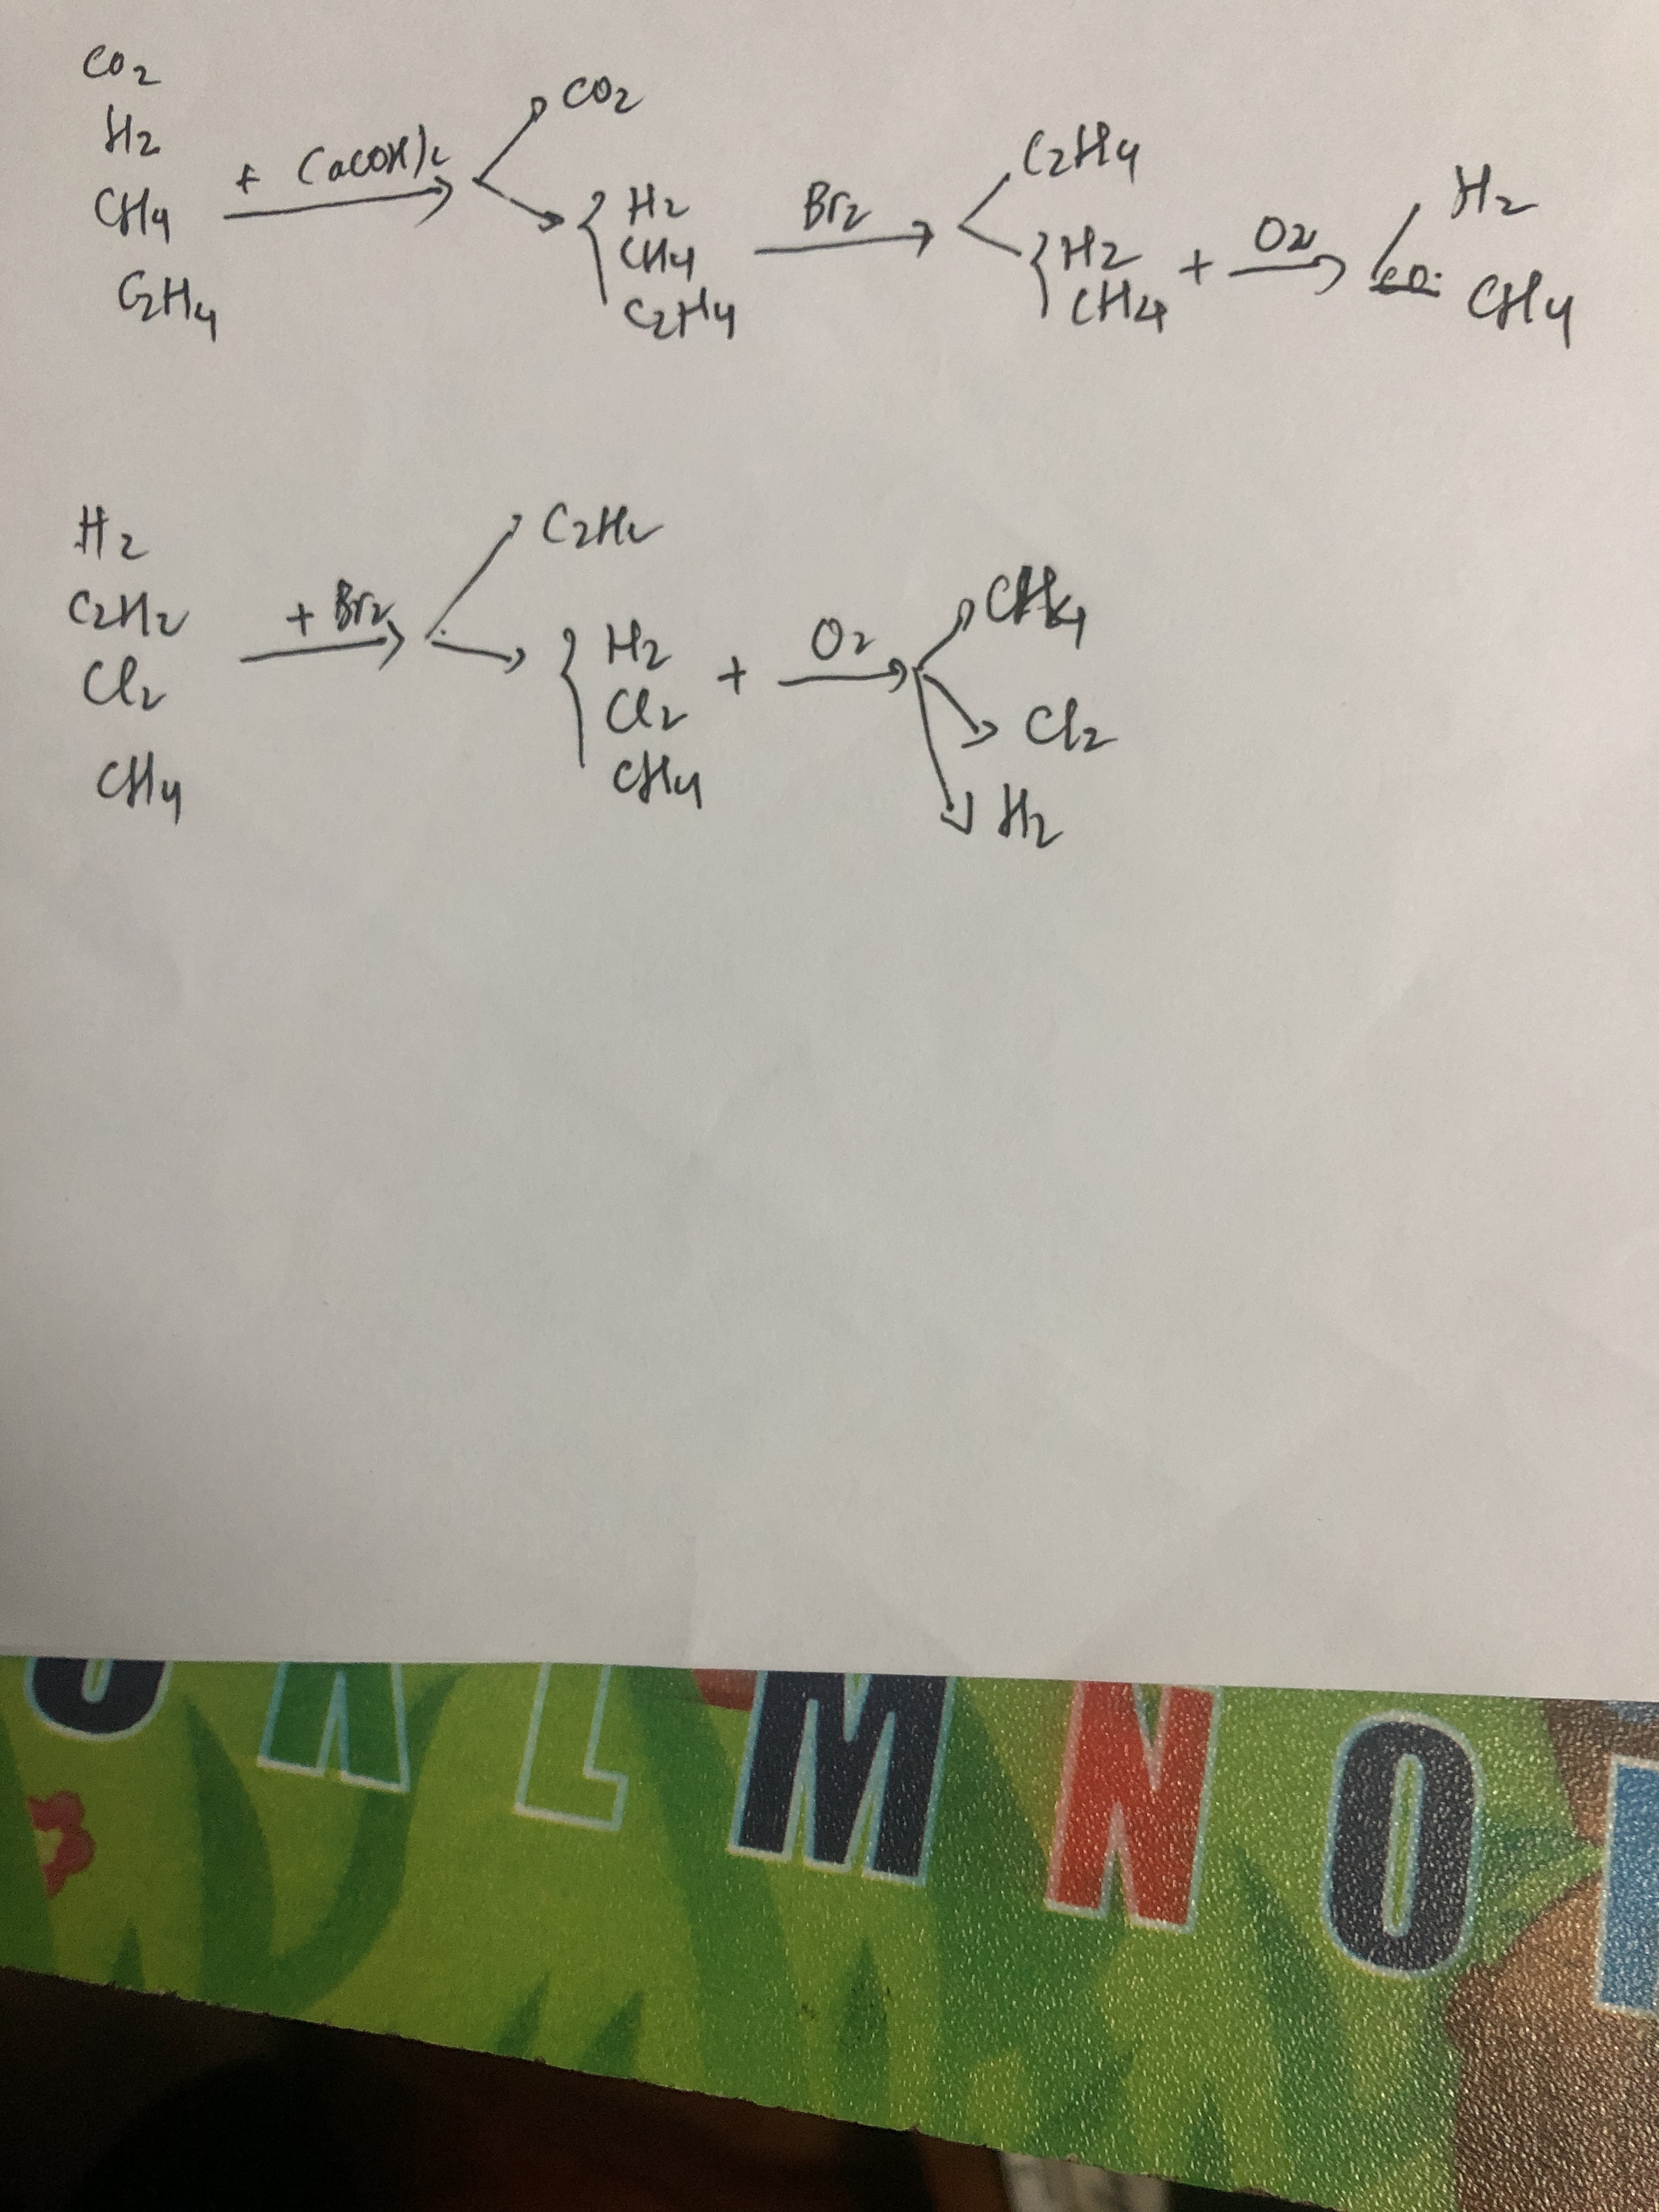 CO2
H2
CH4
C2H4
+ Ca(OH)2
CO2
H2
CH4
C2H4
Br2
C2H4
H2
CH4
+ O2
H2
CH4
H2
C2H2
Cl2
CH4
+ Br2
C2H2
H2
Cl2
CH4
+ O2
CH4
Cl2
H2
L M N O